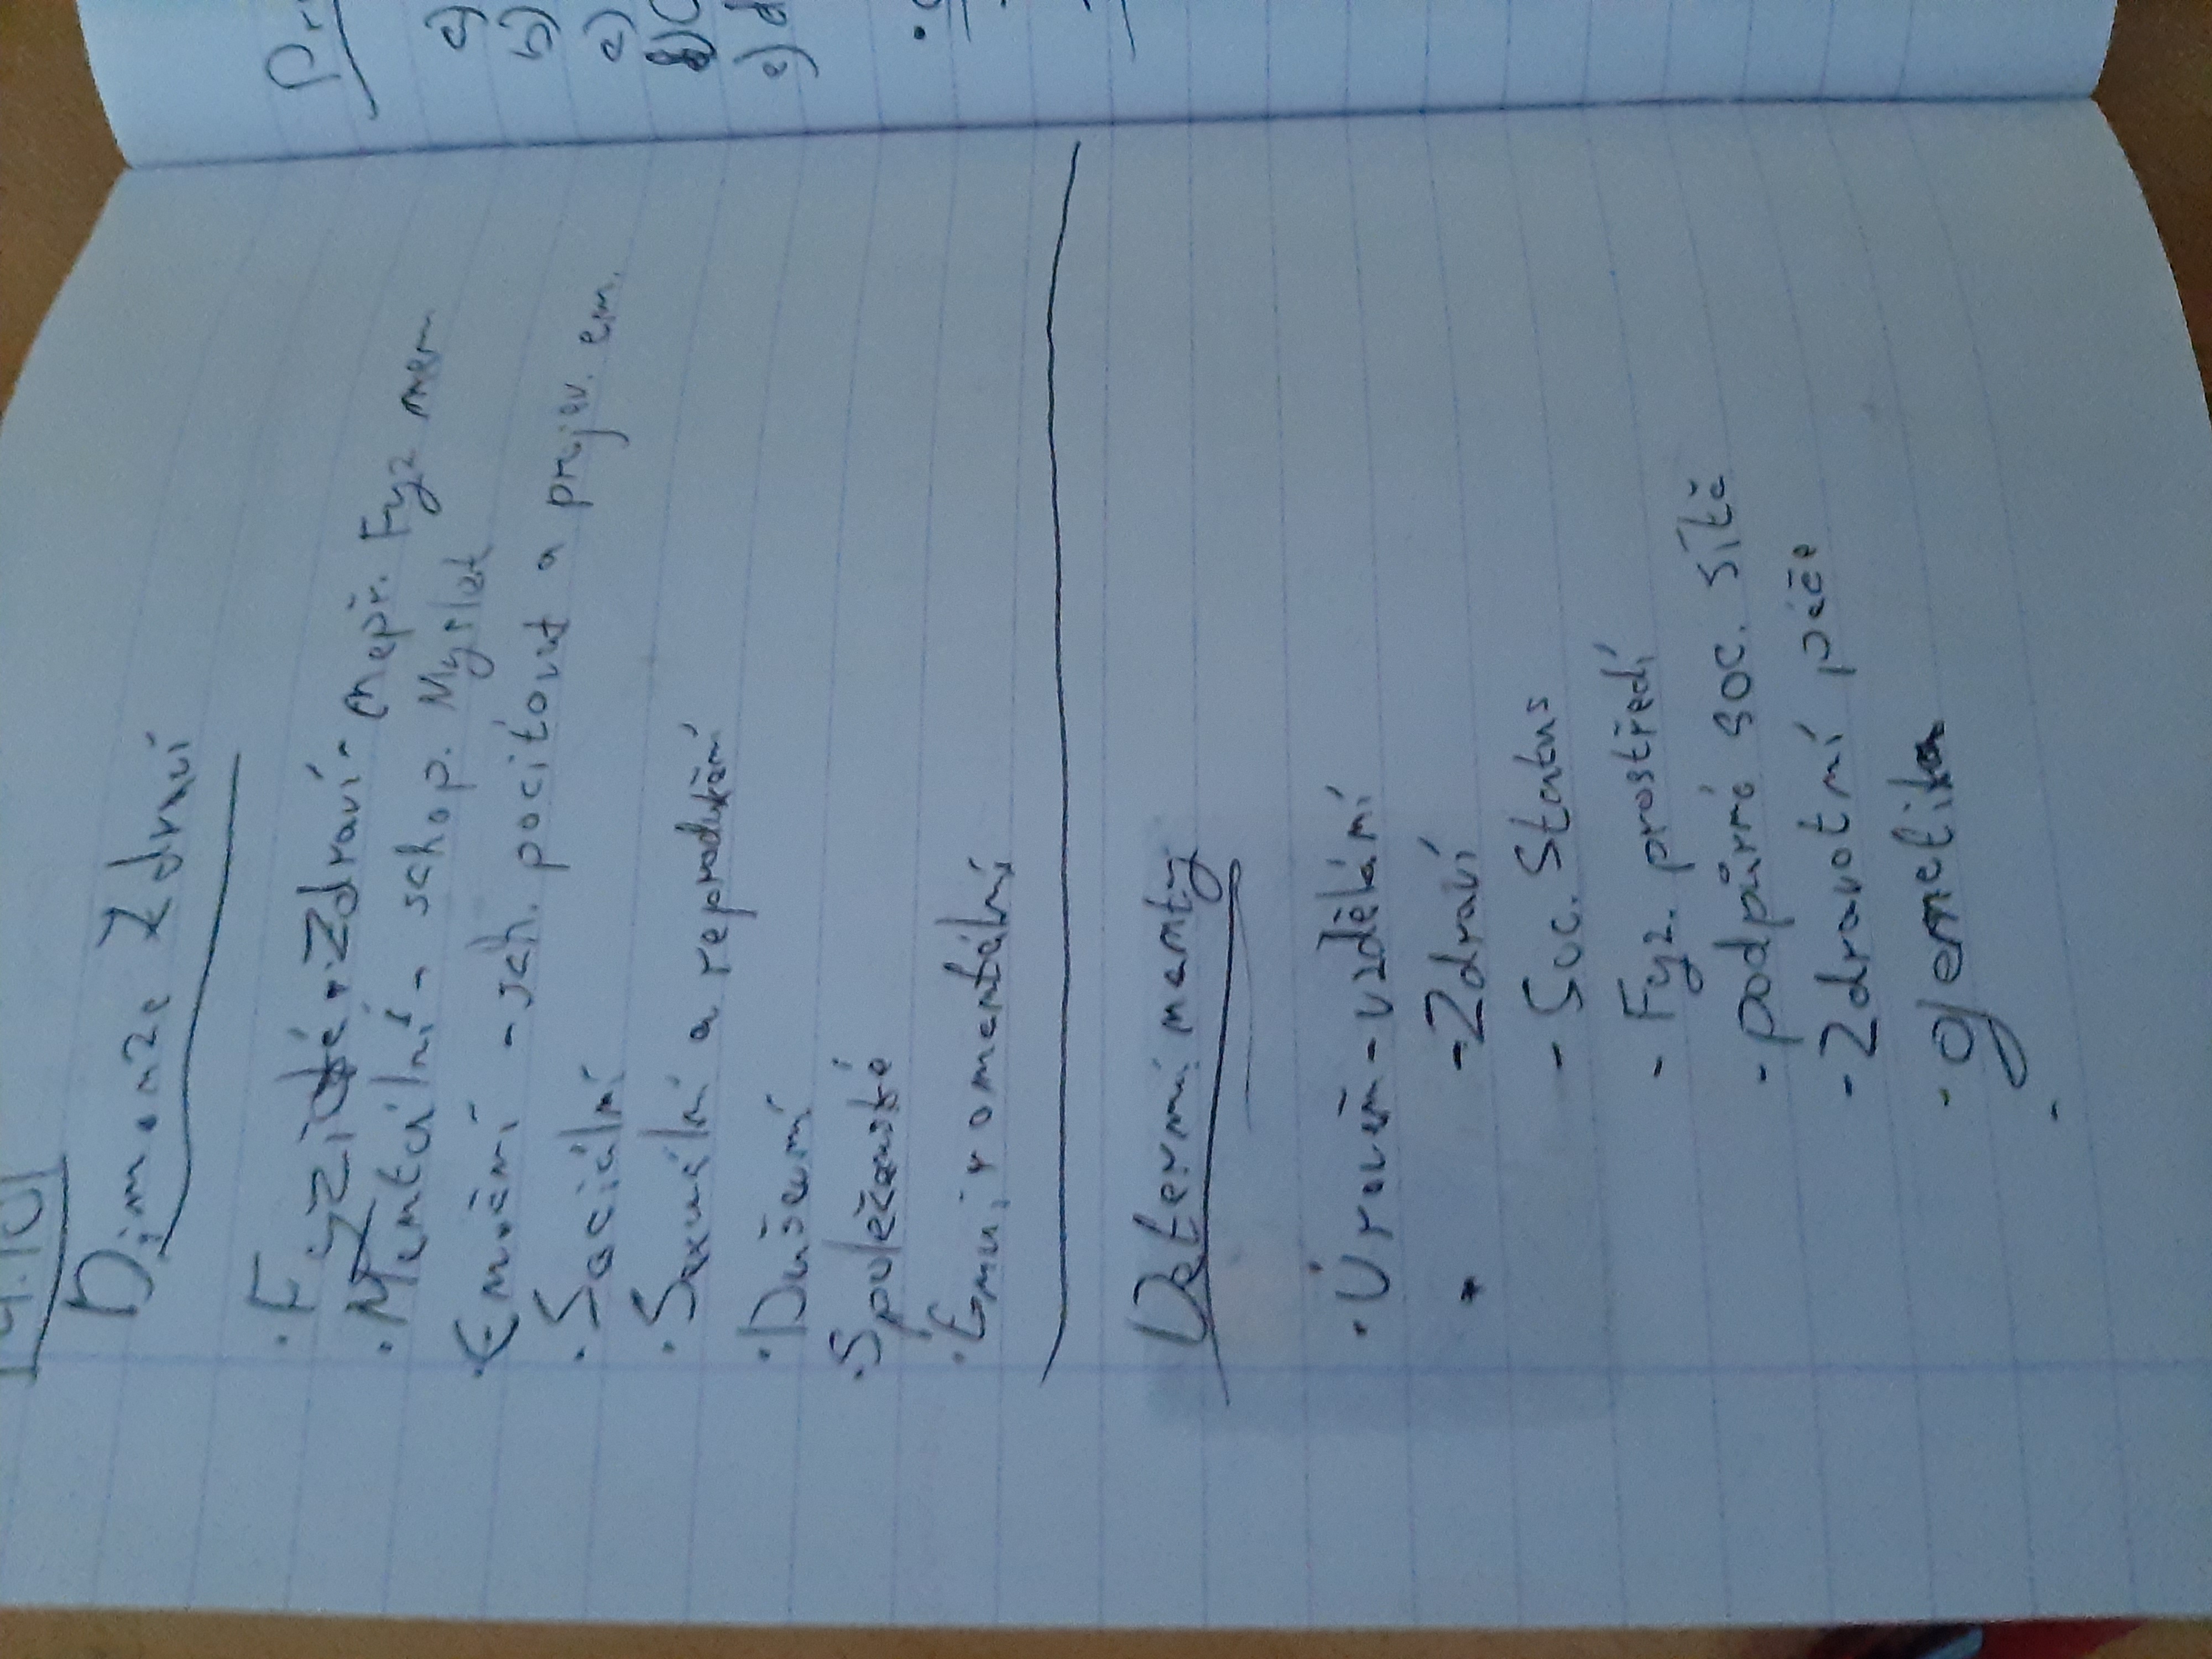 Dimenze Zdraví
· Fyzické Zdraví - nepř. Fyz nem
· Mentální - schop. Myslet
· Emoční - sch. pocitovat a projev. em.
· Sociální
· Sexuální a reprodukční
· Duševní
· Společenské
· Enviromentální
Determinanty
· Úroveň - vzdělání
- Zdraví
- Soc. Status
- Fyz. prostředí
- podpůrné soc. sítě
- Zdravotní péče
- genetika
-
a)
b)
c)
e)